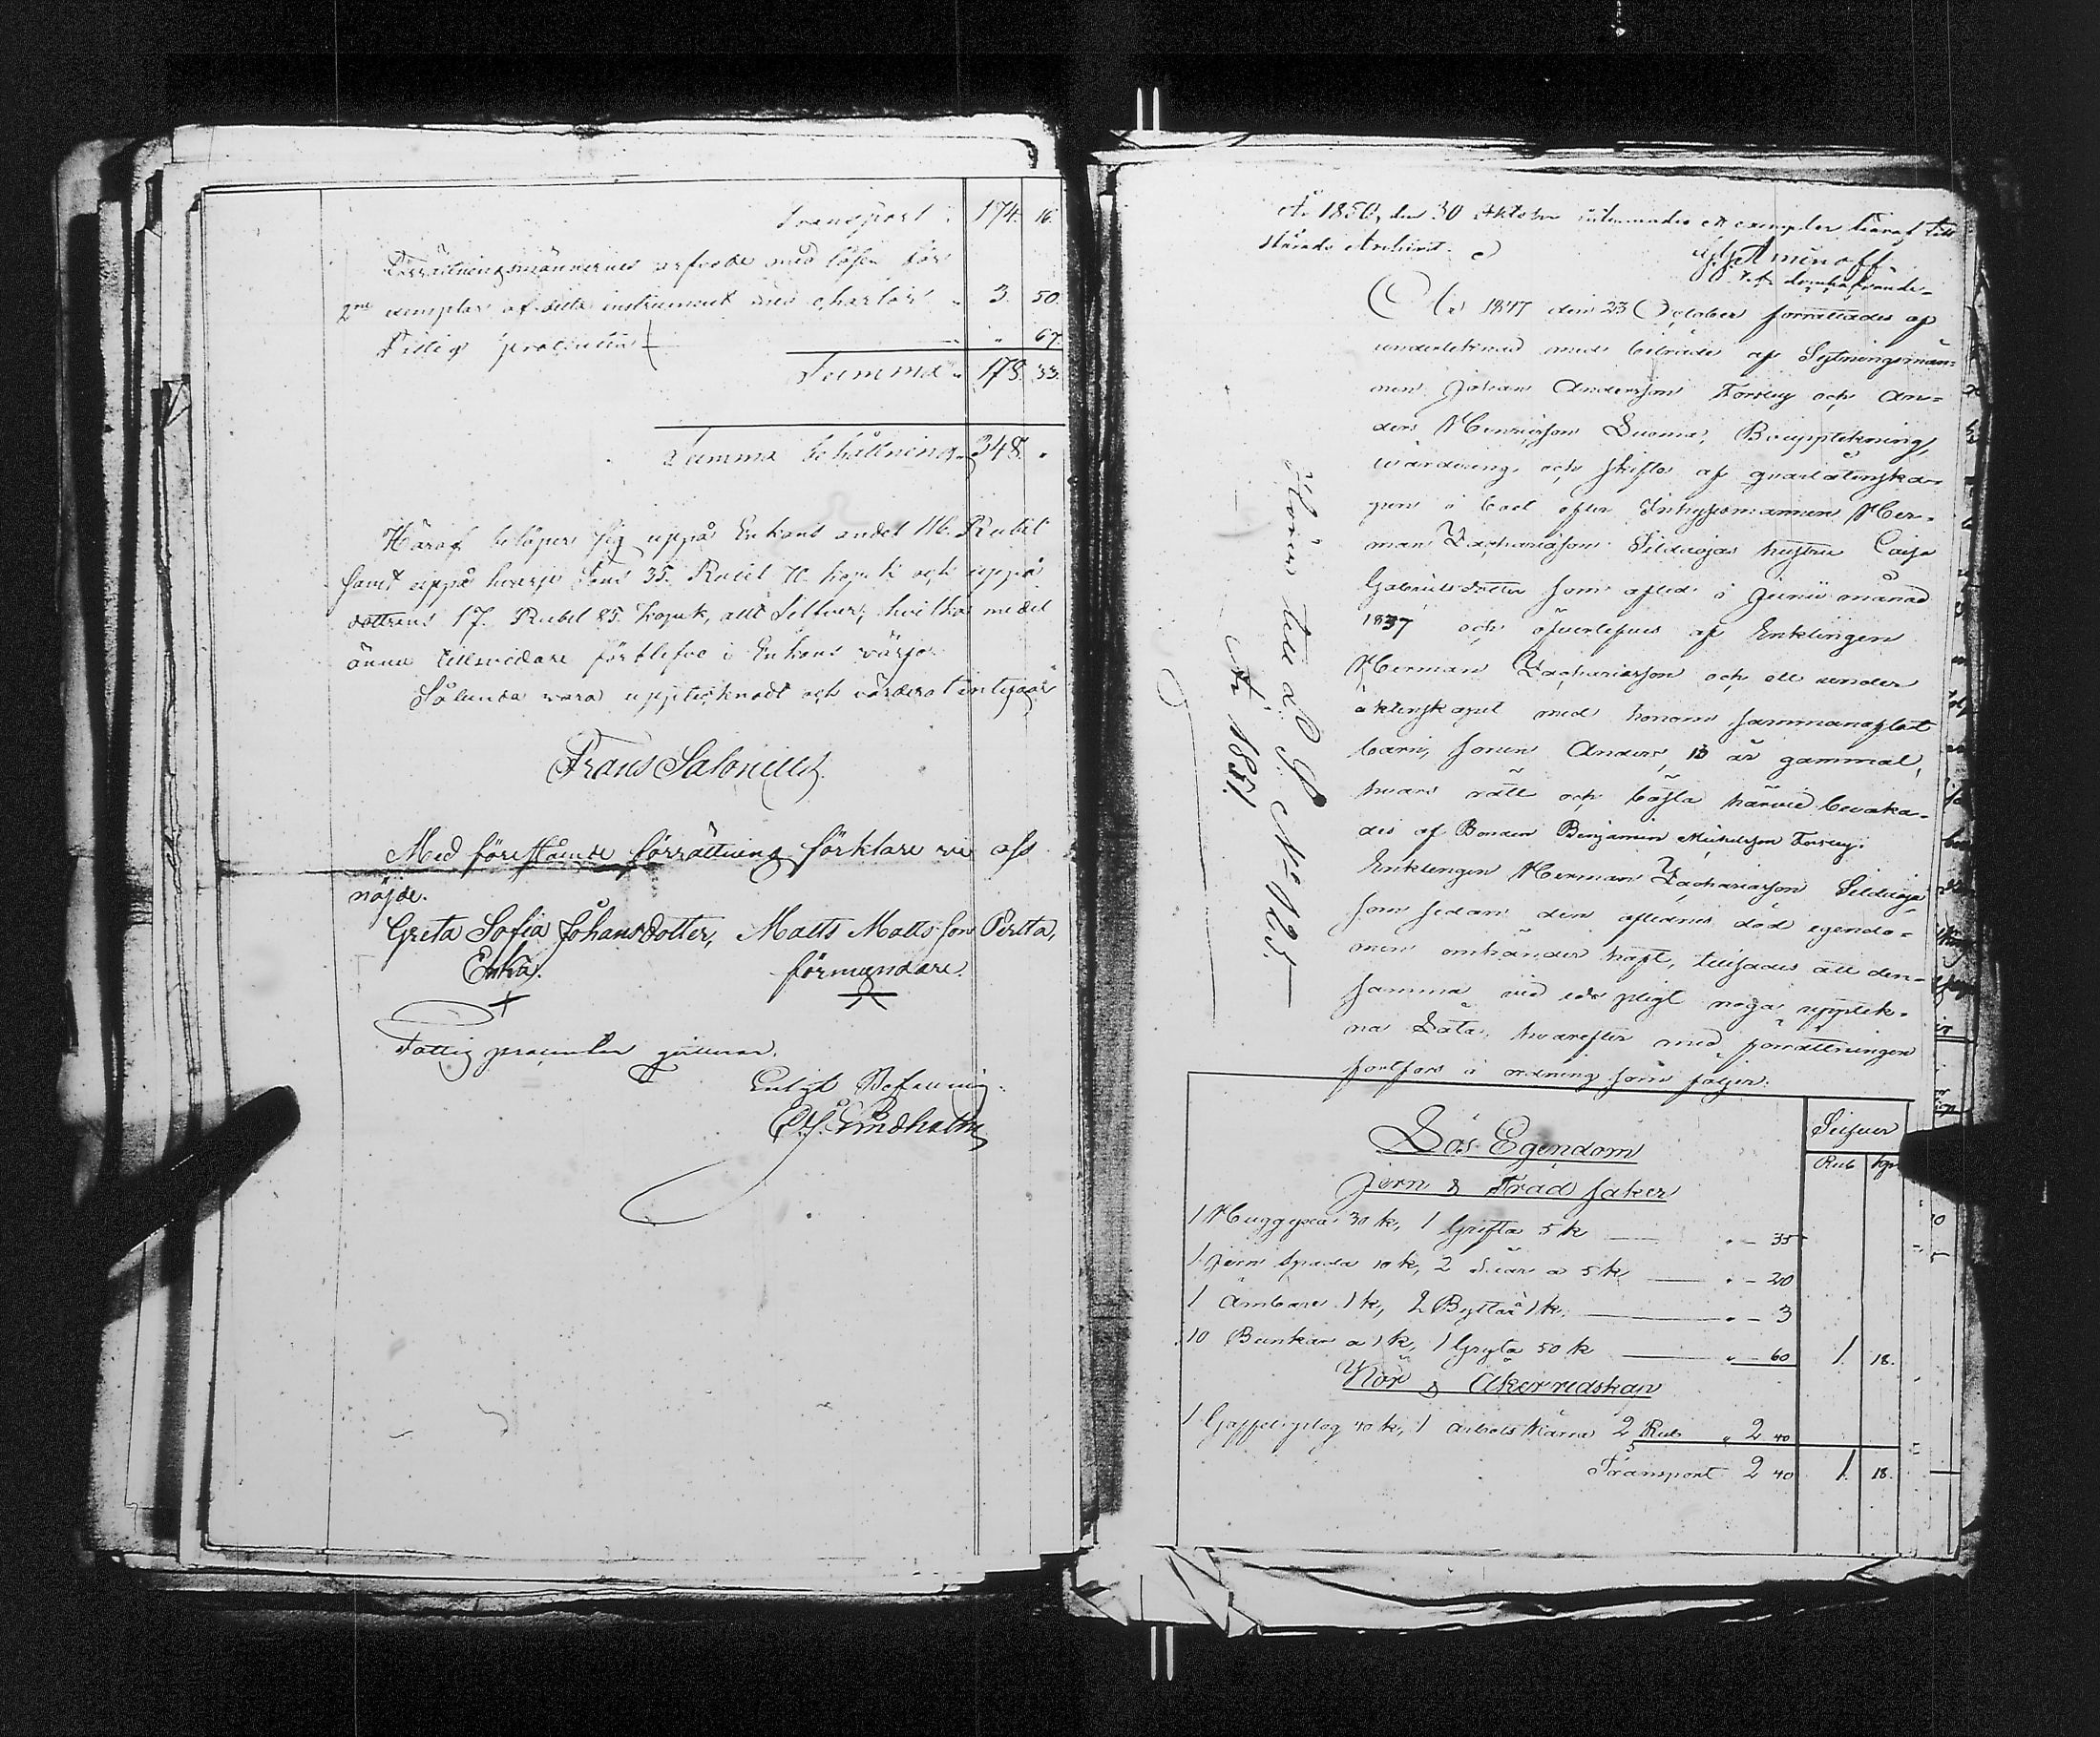 Transport . 174. 16.
Förrättningsmännernes arfvode med lösen för
2ne exemplar af detta instrument med charta „ 3. 50.
Fattig procenten „ „ 67.
Summa „ 178. 33.
Summa behållning „ 348. „
Häraf belöper sig uppå Enkans andel 116. Rubel
samt uppå hvarje Son 35. Rubel 70. kopek och uppå
dottrens 17. Rubel 85. kopek, allt Silfver; hvilka medel
ännu tillsvidare förblefvo i Enkans värjo.
Sålunda vara upptecknadt och värderat intygar
Frans Salonius.
Med föreståënde förrättning förklare vi oss
nöjde.
Greta Sofia Johansdotter, Matts Mattsson Pertta,
Enka. förmyndare.
Fattig procenten qvitteras.
Enligt Befallning.
Lindholm
År 1850, den 30 Oktober inlemnades ett exemplar häraf till
Härads Archivet.
Aminoff.
t.f. domhafvande.
År 1847 den 23 October förrättades af
undertecknad med biträde af Sytningsmän-
nen Johan Andersson Torsby och An-
ders Henricsson Suoma, Bouppteckning,
wärdering och skifte af qvarlåtenska-
pen i boet efter Inhysesmannen Her-
man Zachariasson Sildaojas hustru Caisa
Gabrielsdotter som afled i Junii månad
1837 och öfverlefves af Enklingen
Herman Zachariasson och ett under
äktenskapet med honom sammanaflat
barn, sonen Anders, 13 år gammal,
hvars rätt och bästa härvid bevaka-
des af Bonden Benjamin Michelsson Torsby.
Enklingen Herman Zachariasson Sildaoja
som sedan den aflednes död egendo-
men omhänder haft, tillsades att den-
samma vid eds pligt noga uppteck-
na låta, hvarefter med förrättningen
fortfors i ordning som följer.
Hörer till d. S. No 125.
År 1851.
Silfver
Rub kp
Lös Egendom
Jern & Träd saker
1 Huggyxa 30 k, 1 Grifta 5 k „ 35
1 Jern Spada 10 k, 2 Siar a 5 k „ 20
1 Ämbare 1 k, 2 Byttor a 1 k „ 3
10 Bunkar a 1 k, 1 Gryta 50 k „ 60 1. 18.
Kör & Åkerredskap
1 Gaffelplog 40 k, 1 arbets kärra 2 Rub „ 2 40
Transport 2 40 1. 18.